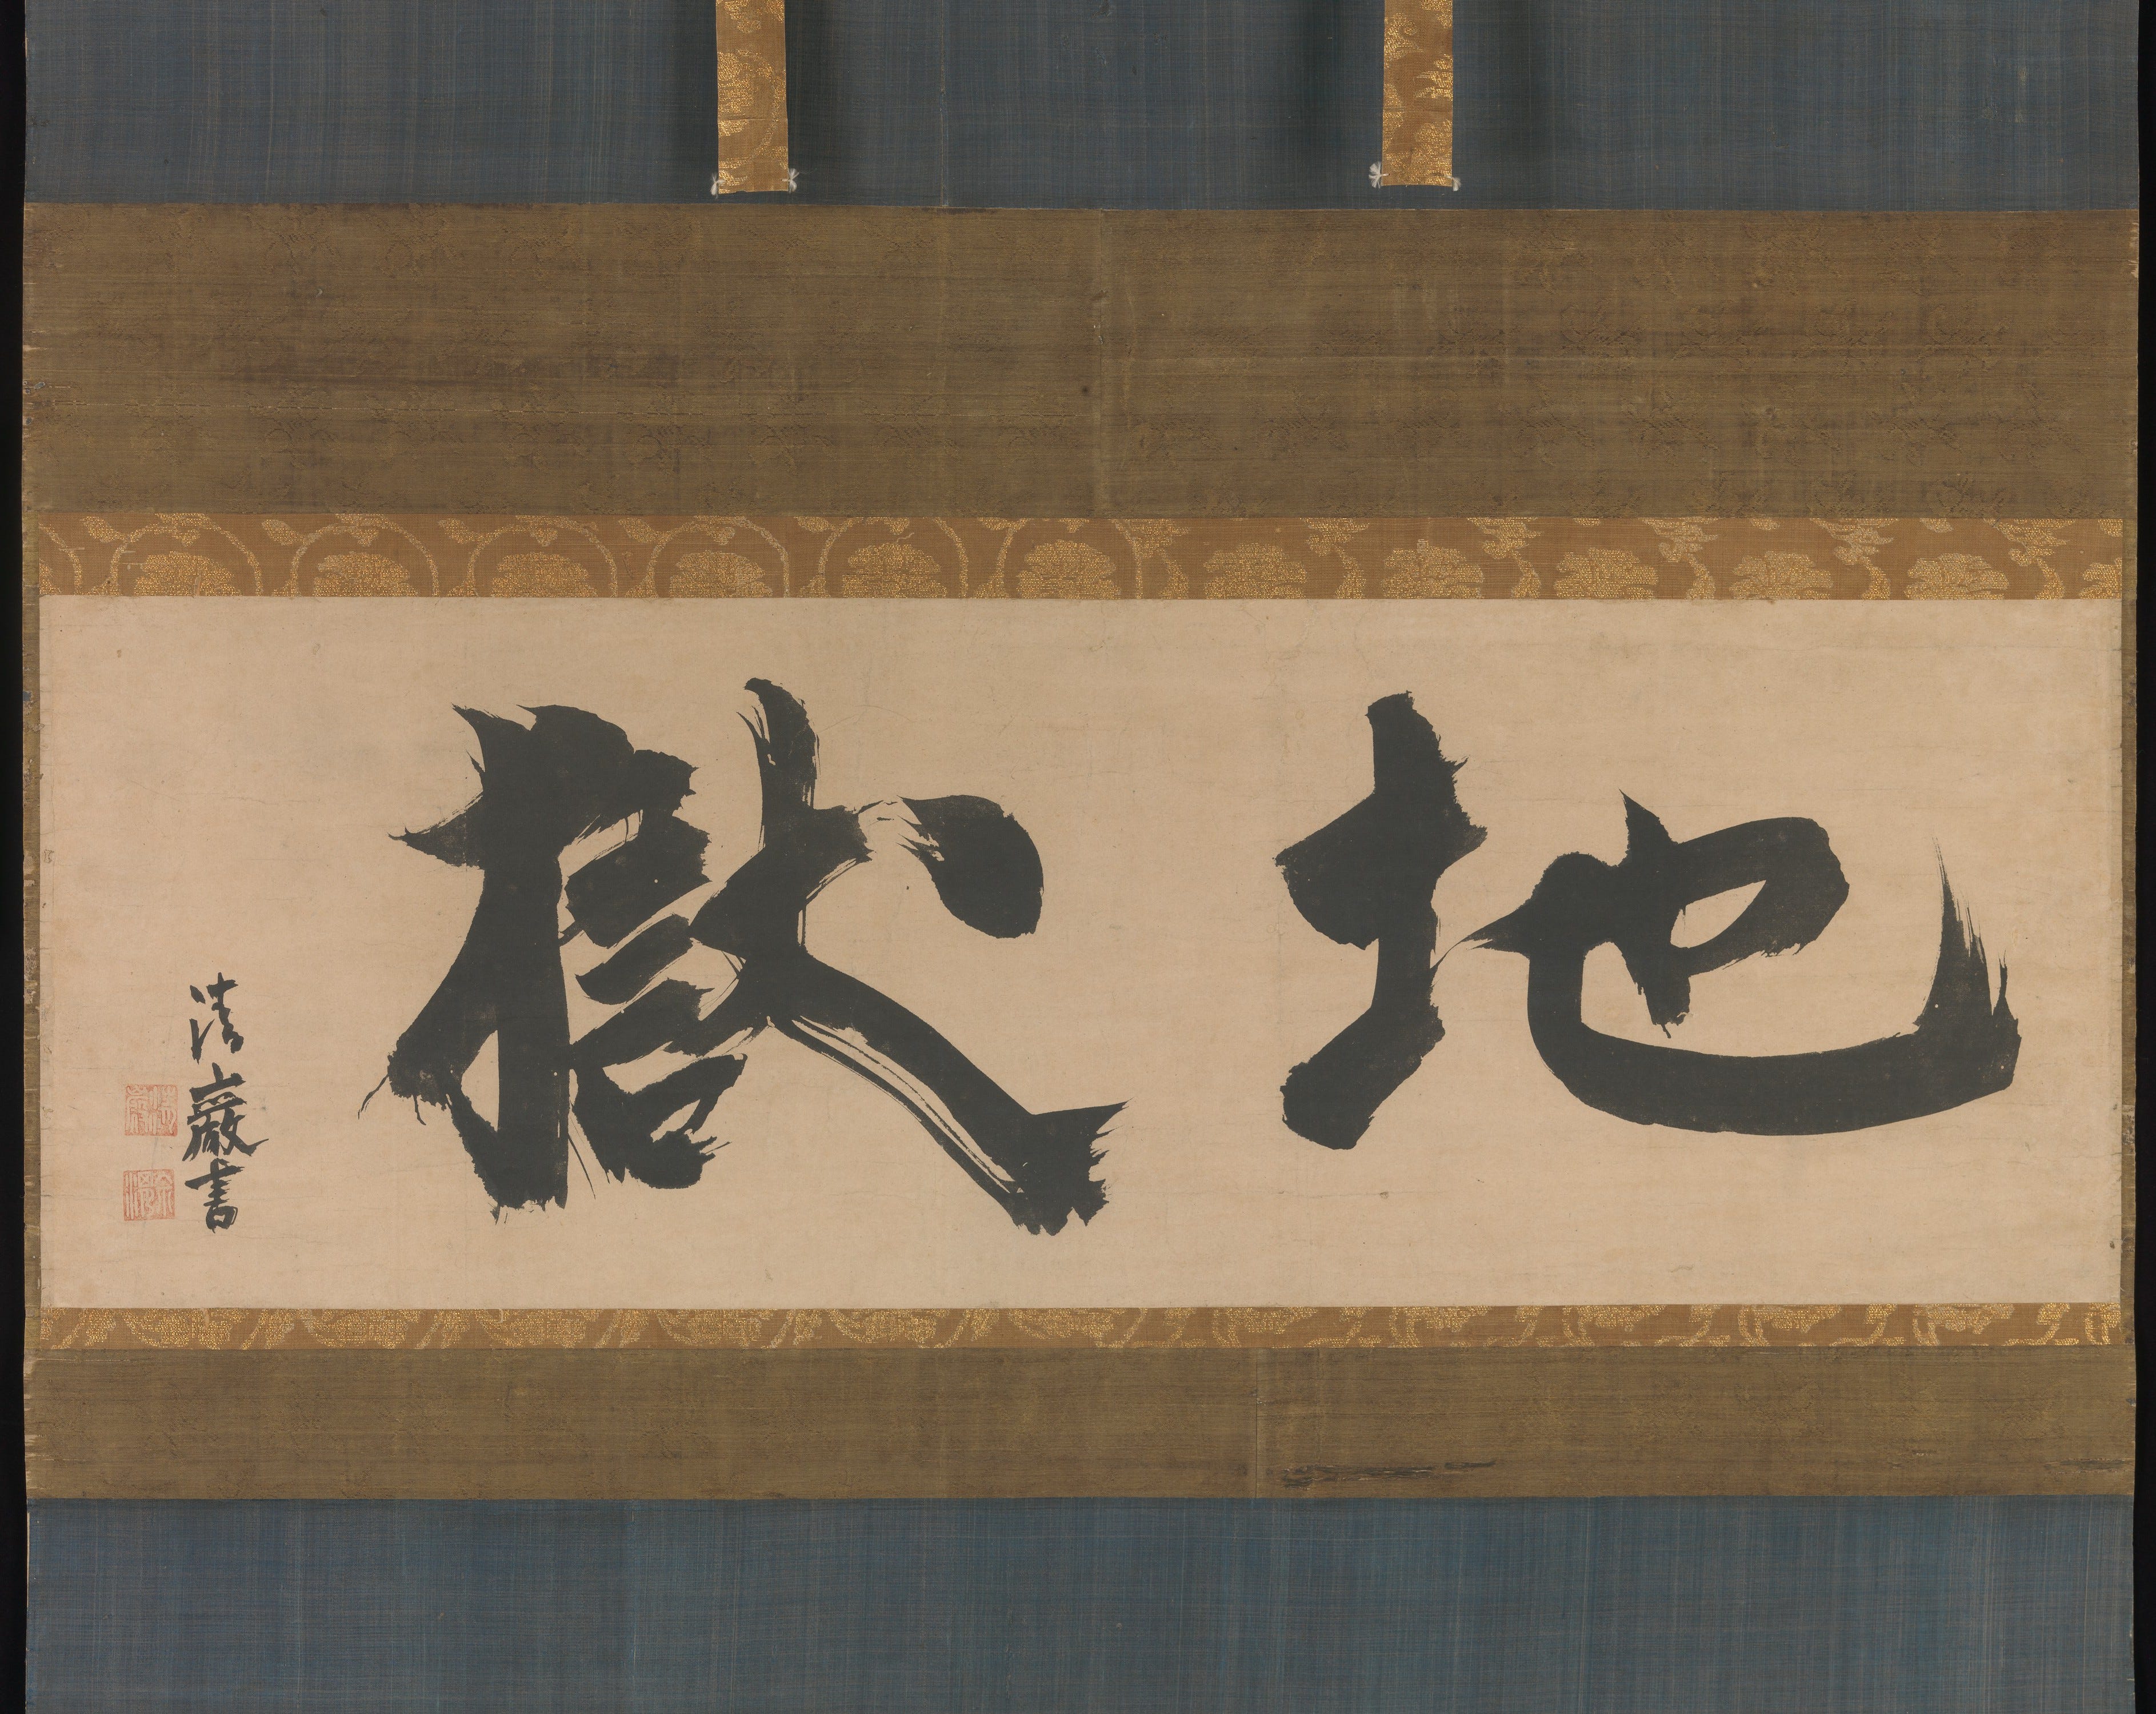 地獄
清巖書